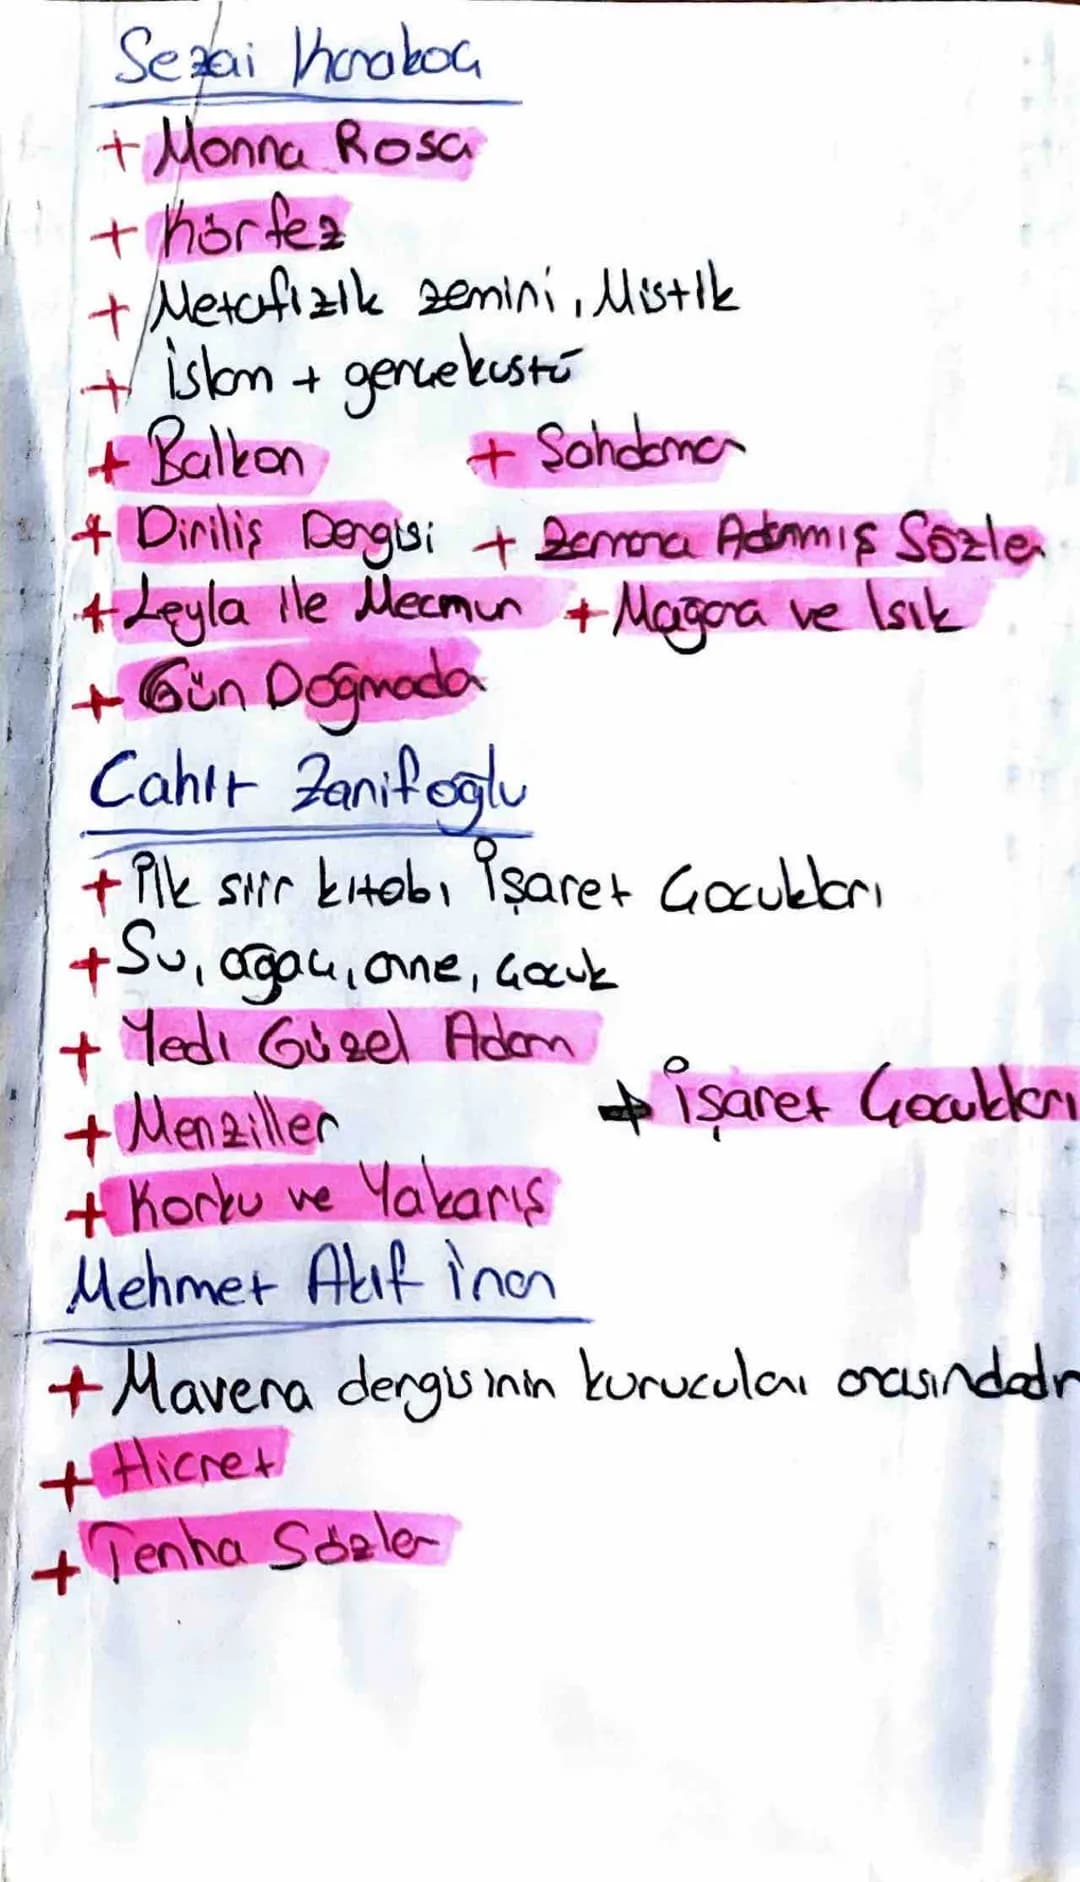 Sezai Karakoç
+ Monna Rosa
+ Körfez
+ Metafizik zemini, Mistik
+ İslam + gerçeküstü
+ Balkon + Şahdamar
+ Diriliş Dergisi + Zamana Adanmış Sözler
+ Leyla ile Mecnun + Mağara ve Işık
+ Gün Doğmada
Cahit Zarifoğlu
+ İlk şiir kitabı İşaret Çocukları
+ Su, ağaç, anne, çocuk
+ Yedi Güzel Adam
+ Menziller → İşaret Çocukları
+ Korku ve Yakarış
Mehmet Akif İnan
+ Mavera dergisinin kurucuları arasındadır
+ Hicret
+ Tenha Sözler